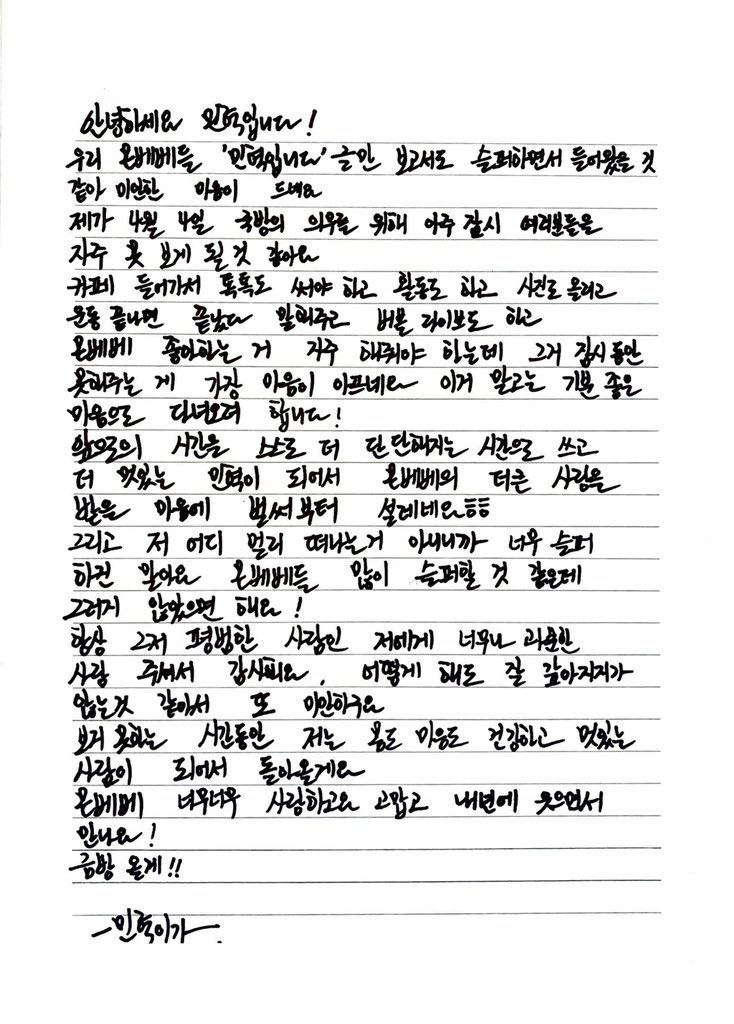 안녕하세요 민혁입니다!
우리 몬베베들 '민혁입니다' 글만 보고서도 슬퍼하면서 들어왔을 것
같아 미안한 마음이 드네요
제가 4월 4일 국방의 의무를 위해 아주 잠시 여러분들을
자주 못 보게 될 것 같아요
카페 들어가서 톡톡도 써야 하고 활동도 하고 사진도 올리고
운동 끝나면 끝났다 말해주고 버블 라이브도 하고
몬베베 좋아하는 거 자주 해줘야 하는데 그거 잠시동안
못해주는 게 가장 마음이 아프네요 이거 말고는 기분 좋은
마음으로 다녀오려 합니다!
앞으로의 시간을 스스로 더 단단해지는 시간으로 쓰고
더 멋있는 민혁이 되어서 몬베베의 더큰 사랑을
받을 마음에 벌써부터 설레네요ㅎㅎ
그리고 저 어디 멀리 떠나는거 아니니까 너무 슬퍼
하진 말아요 몬베베들 많이 슬퍼할 것 같은데
그러지 않았으면 해요!
항상 그저 평범한 사람인 저에게 너무나 과분한
사랑 주셔서 감사해요. 어떻게 해도 잘 갚아지지가
않는것 같아서 또 미안하구요
보지 못하는 시간동안 저는 몸도 마음도 건강하고 멋있는
사람이 되어서 돌아올게요
몬베베 너무너무 사랑하고요 고맙고 내년에 웃으면서
만나요!
금방 올게!!
-민혁이가-.